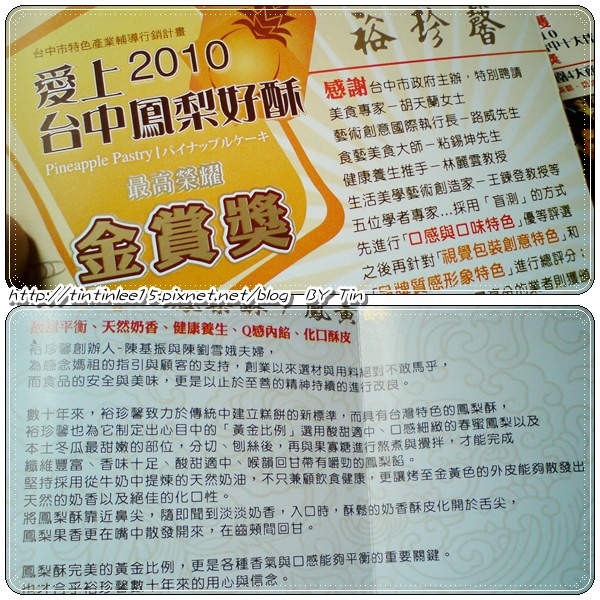 台中市特色產業輔導行銷計畫
愛上2010
台中鳳梨好酥
Pineapple Pastry | パイナップルケーキ
最高榮耀
金賞獎
裕珍馨
感謝台中市政府主辦，特別聘請
美食專家－胡天蘭女士
藝術創意國際執行長－路威先生
食藝美食大師－粘錫坤先生
健康養生推手－林麗雲教授
生活美學藝術創造家－王鍊登教授等
五位學者專家…採用「盲測」的方式
先進行「口感與口味特色」優等評選
之後再針對「視覺包裝創意特色」和
「品牌質感形象特色」進行總評分：
http://tintinlee15.pixnet.net/blog BY Tin
酸甜平衡、天然奶香、健康養生、Q感內餡、化口酥皮
裕珍馨創辦人-陳基振與陳劉雪娥夫婦，
為感念媽祖的指引與顧客的支持，創業以來選材與用料絕對不敢馬乎，
而食品的安全與美味，更是以止於至善的精神持續的進行改良。
數十年來，裕珍馨致力於傳統中建立糕餅的新標準，而具有台灣特色的鳳梨酥，
裕珍馨也為它制定出心目中的「黃金比例」選用酸甜適中、口感細緻的春蜜鳳梨以及
本土冬瓜最甜嫩的部位，分切、刨絲後，再與果寡糖進行熬煮與攪拌，才能完成
纖維豐富、香味十足、酸甜適中、喉韻回甘帶有嚼勁的鳳梨餡。
堅持採用從牛奶中提煉的天然奶油，不只兼顧飲食健康，更讓烤至金黃色的外皮能夠散發出
天然的奶香以及絕佳的化口性。
將鳳梨酥靠近鼻尖，隨即聞到淡淡奶香，入口時，酥鬆的奶香酥皮化開於舌尖，
鳳梨果香更在嘴中散發開來，在齒頰間回甘。
鳳梨酥完美的黃金比例，更是各種香氣與口感能夠平衡的重要關鍵。
也才合乎裕珍馨數十年的用心與信念。